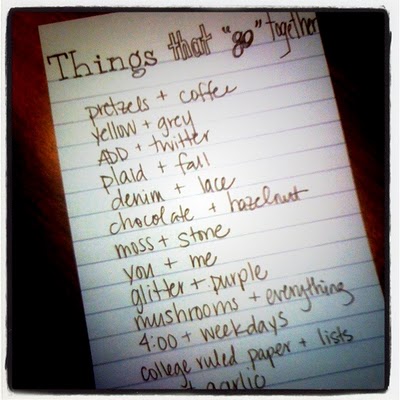 Things that "go" together
pretzels + coffee
yellow + grey
ADD + twitter
plaid + fall
denim + lace
chocolate + hazelnut
moss + stone
you + me
glitter + purple
mushrooms + everything
4:00 + weekdays
college ruled paper + lists
+ garlic